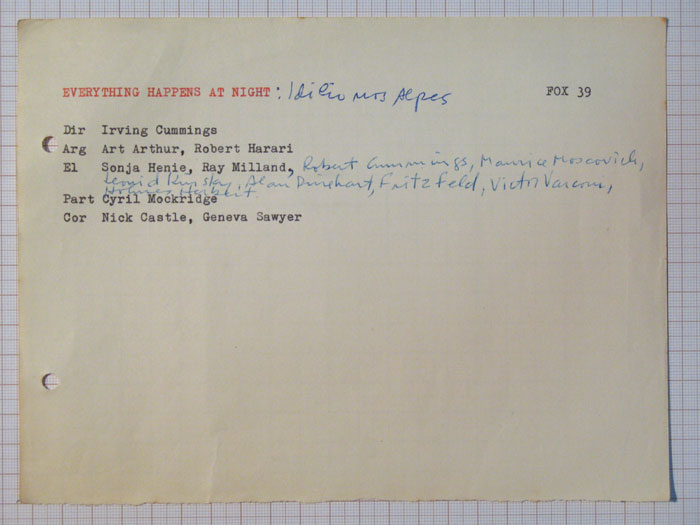 EVERYTHING HAPPENS AT NIGHT : Idílio nos Alpes FOX 39
Dir Irving Cummings
Arg Art Arthur, Robert Harari
El Sonja Henie, Ray Milland, Robert Cummings, Maurice Moscovich,
Leonid Kinskey, Alan Dinehart, Fritz Feld, Victor Varconi,
Holmes Herbert
Part Cyril Mockridge
Cor Nick Castle, Geneva Sawyer